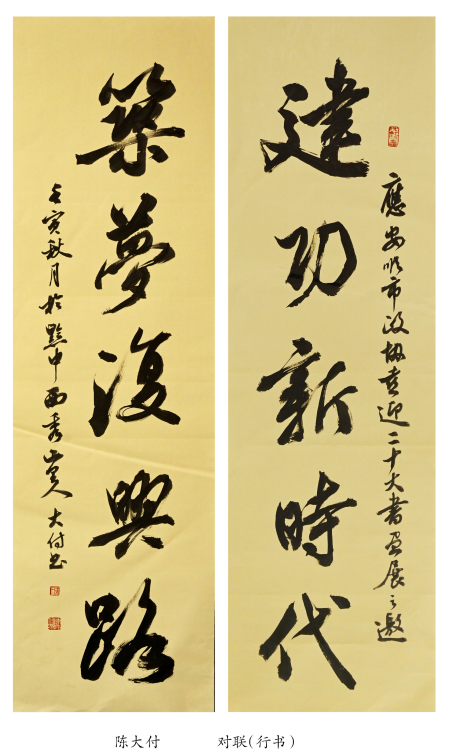 應安順市政協喜迎二十大書畫展之邀
建功新時代
築夢復興路
壬寅秋月於黔中西秀山人大付书
陈大付 对联(行书)